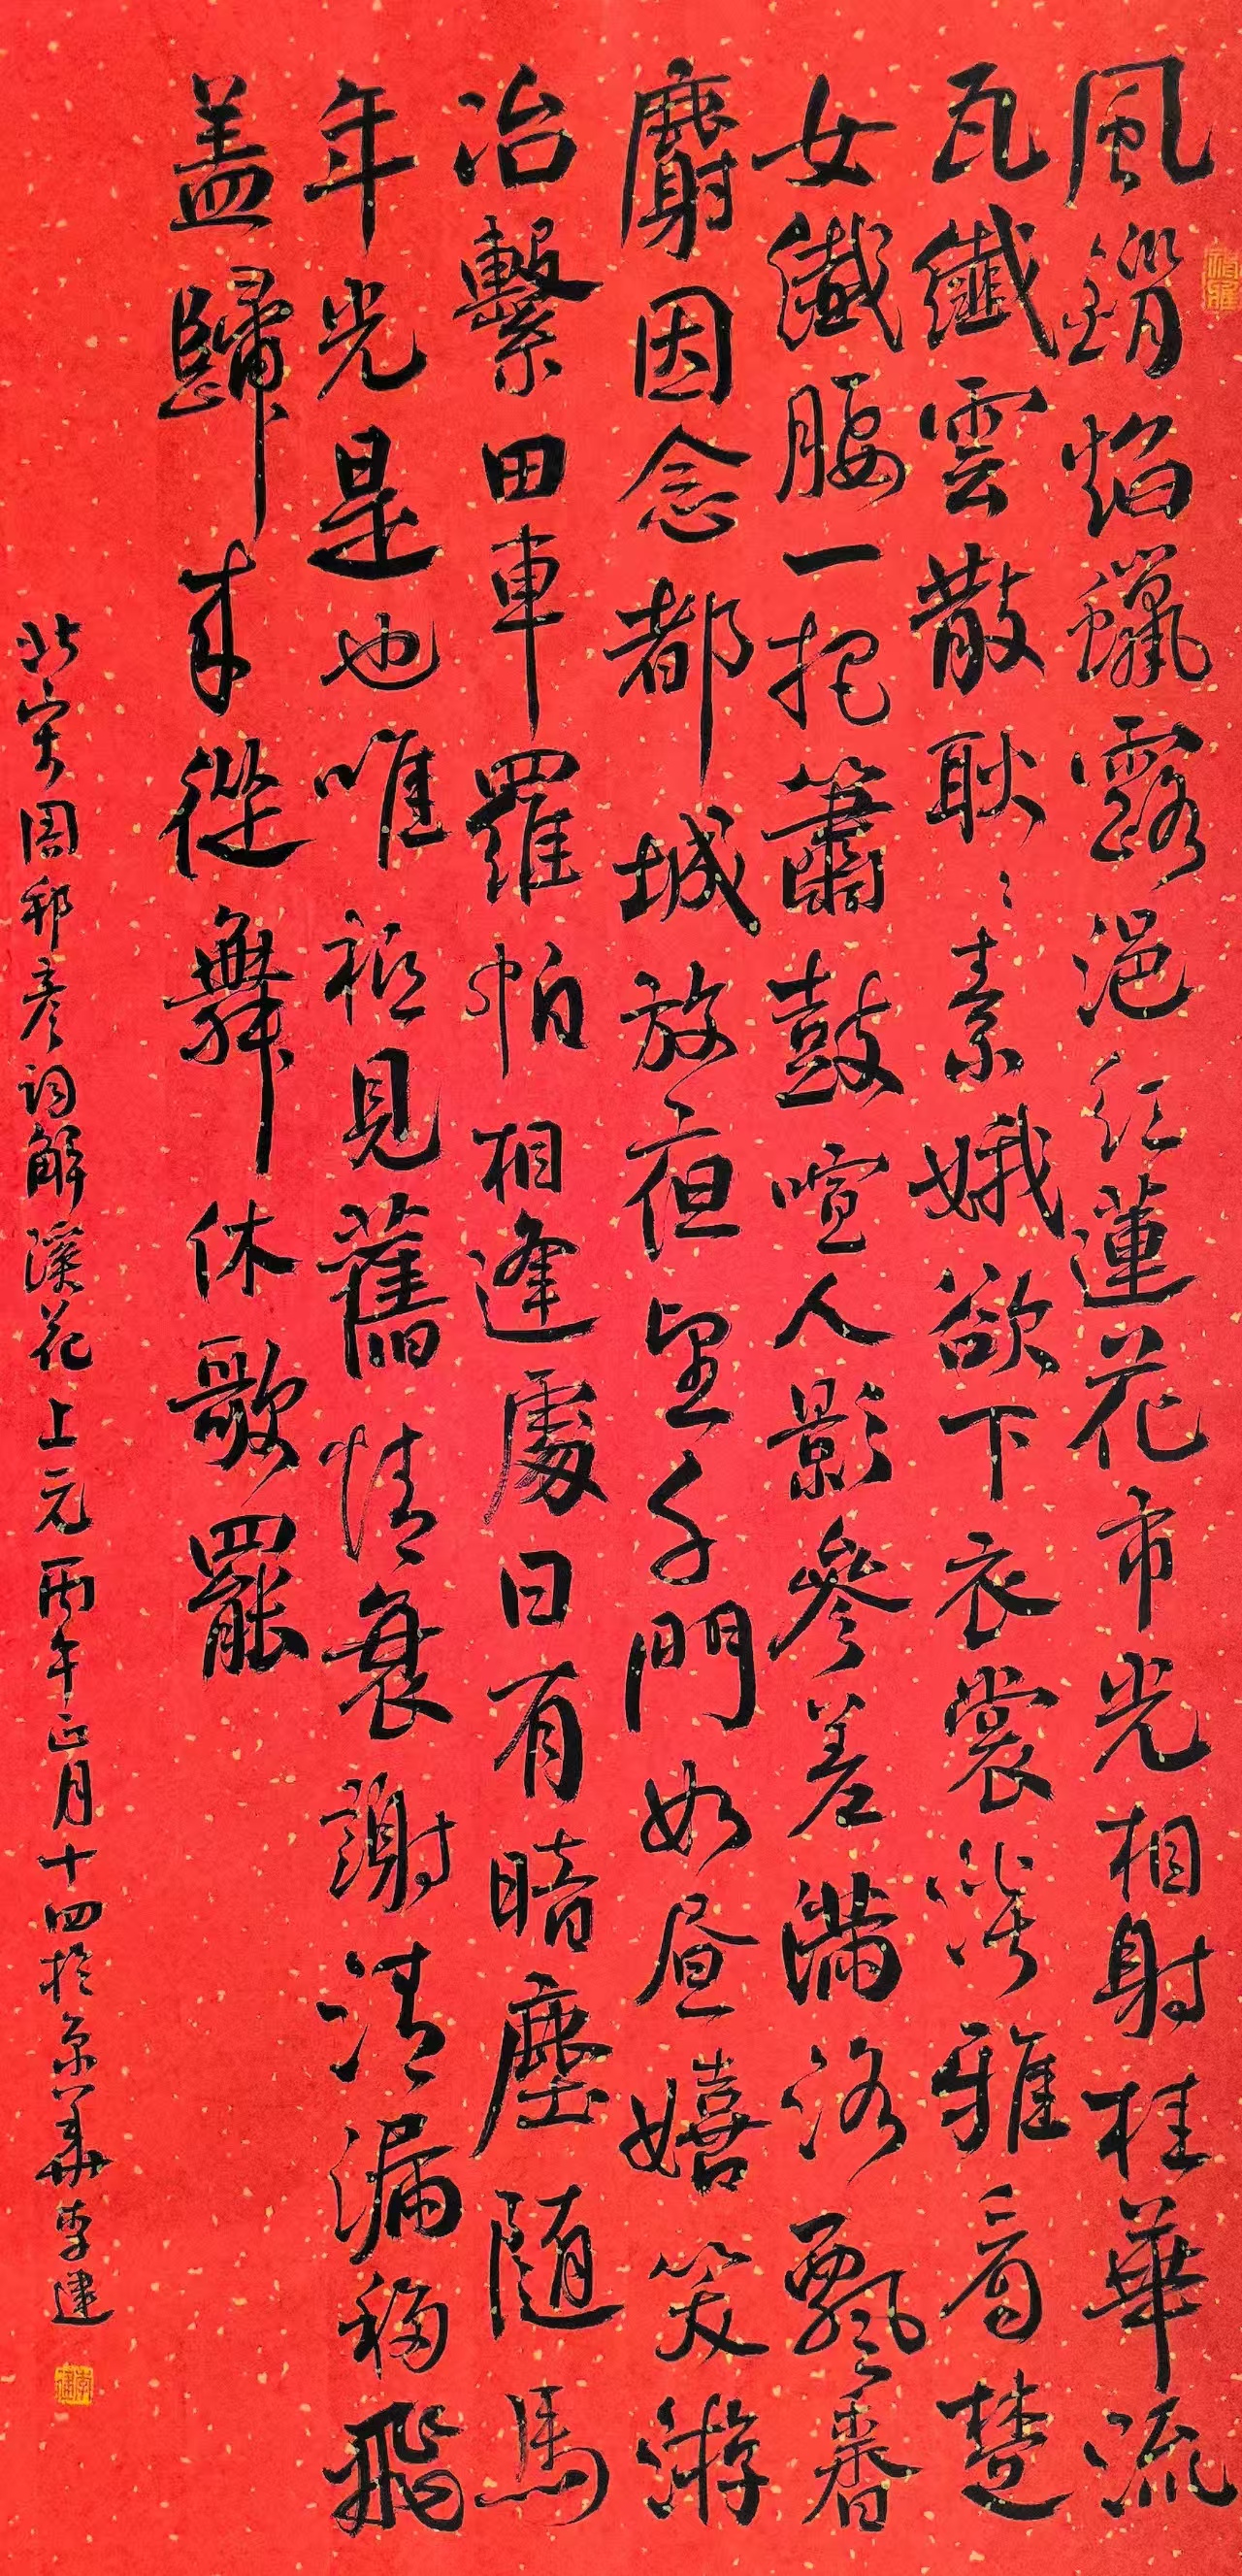 風銷焰蠟露浥紅蓮花市光相射桂華流
瓦纖雲散耿〻素娥欲下衣裳淡雅看楚
女纖腰一把簫鼓喧人影參差滿路飄香
麝因念都城放夜望千門如晝嬉笑游
冶繫田車羅帕相逢處日有暗塵隨馬
年光是也唯祗見舊情衰謝清漏移飛
盖歸來從舞休歌罷
北宋周邦彥詞解花上元丙午正月十四於京華李建
李建